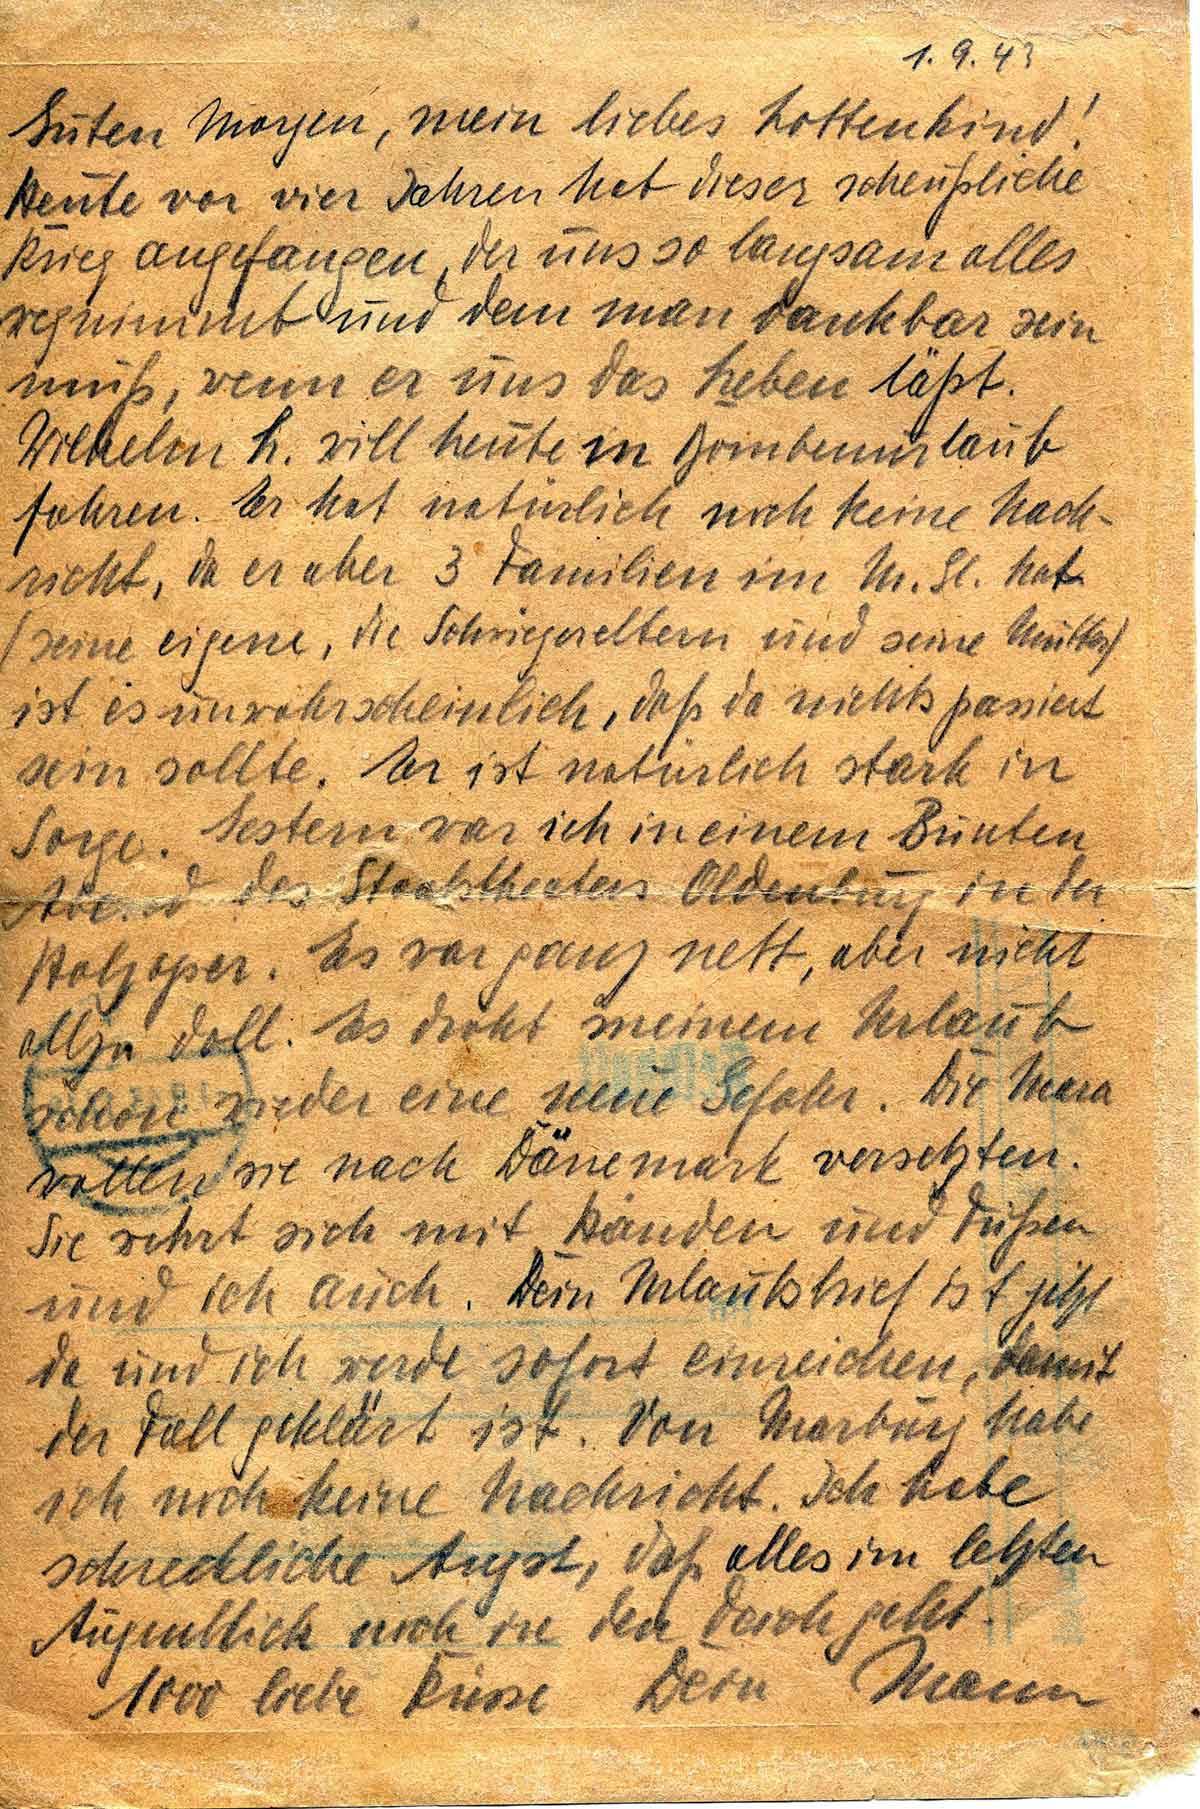 1. 9. 43
Guten Morgen, mein liebes Lottenkind!
Heute vor vier Jahren hat dieser scheußliche
Krieg angefangen, der uns so langsam alles
wegnimmt und dem man dankbar sein
muß, wenn er uns das Leben läßt.
Wilhelm L. will heute in Bombenurlaub
fahren. Er hat natürlich noch keine Nach-
richt, da er aber 3 Familien im M. Gl. hat
(seine eigene, die Schwiegereltern und seine Mutter)
ist es unwahrscheinlich, daß da nichts passiert
sein sollte. Er ist natürlich stark in
Sorge. Gestern war ich in einem Bunten
Abend des Staatstheaters Oldenburg in der
Holzoper. Es war ganz nett, aber nicht
allzu doll. Es droht meinem Urlaub
schon wieder eine neue Gefahr. Die Mara
wollen sie nach Dänemark versetzten.
Sie wehrt sich mit Händen und Füßen
und ich auch. Dein Urlaubsbrief ist jetzt
da und ich werde sofort einreichen, damit
der Fall geklärt ist. Von Marburg habe
ich noch keine Nachricht. Ich habe
schreckliche Angst, daß alles im letzten
Augenblick noch in den geht.
1000 liebe Küsse Dein Mann